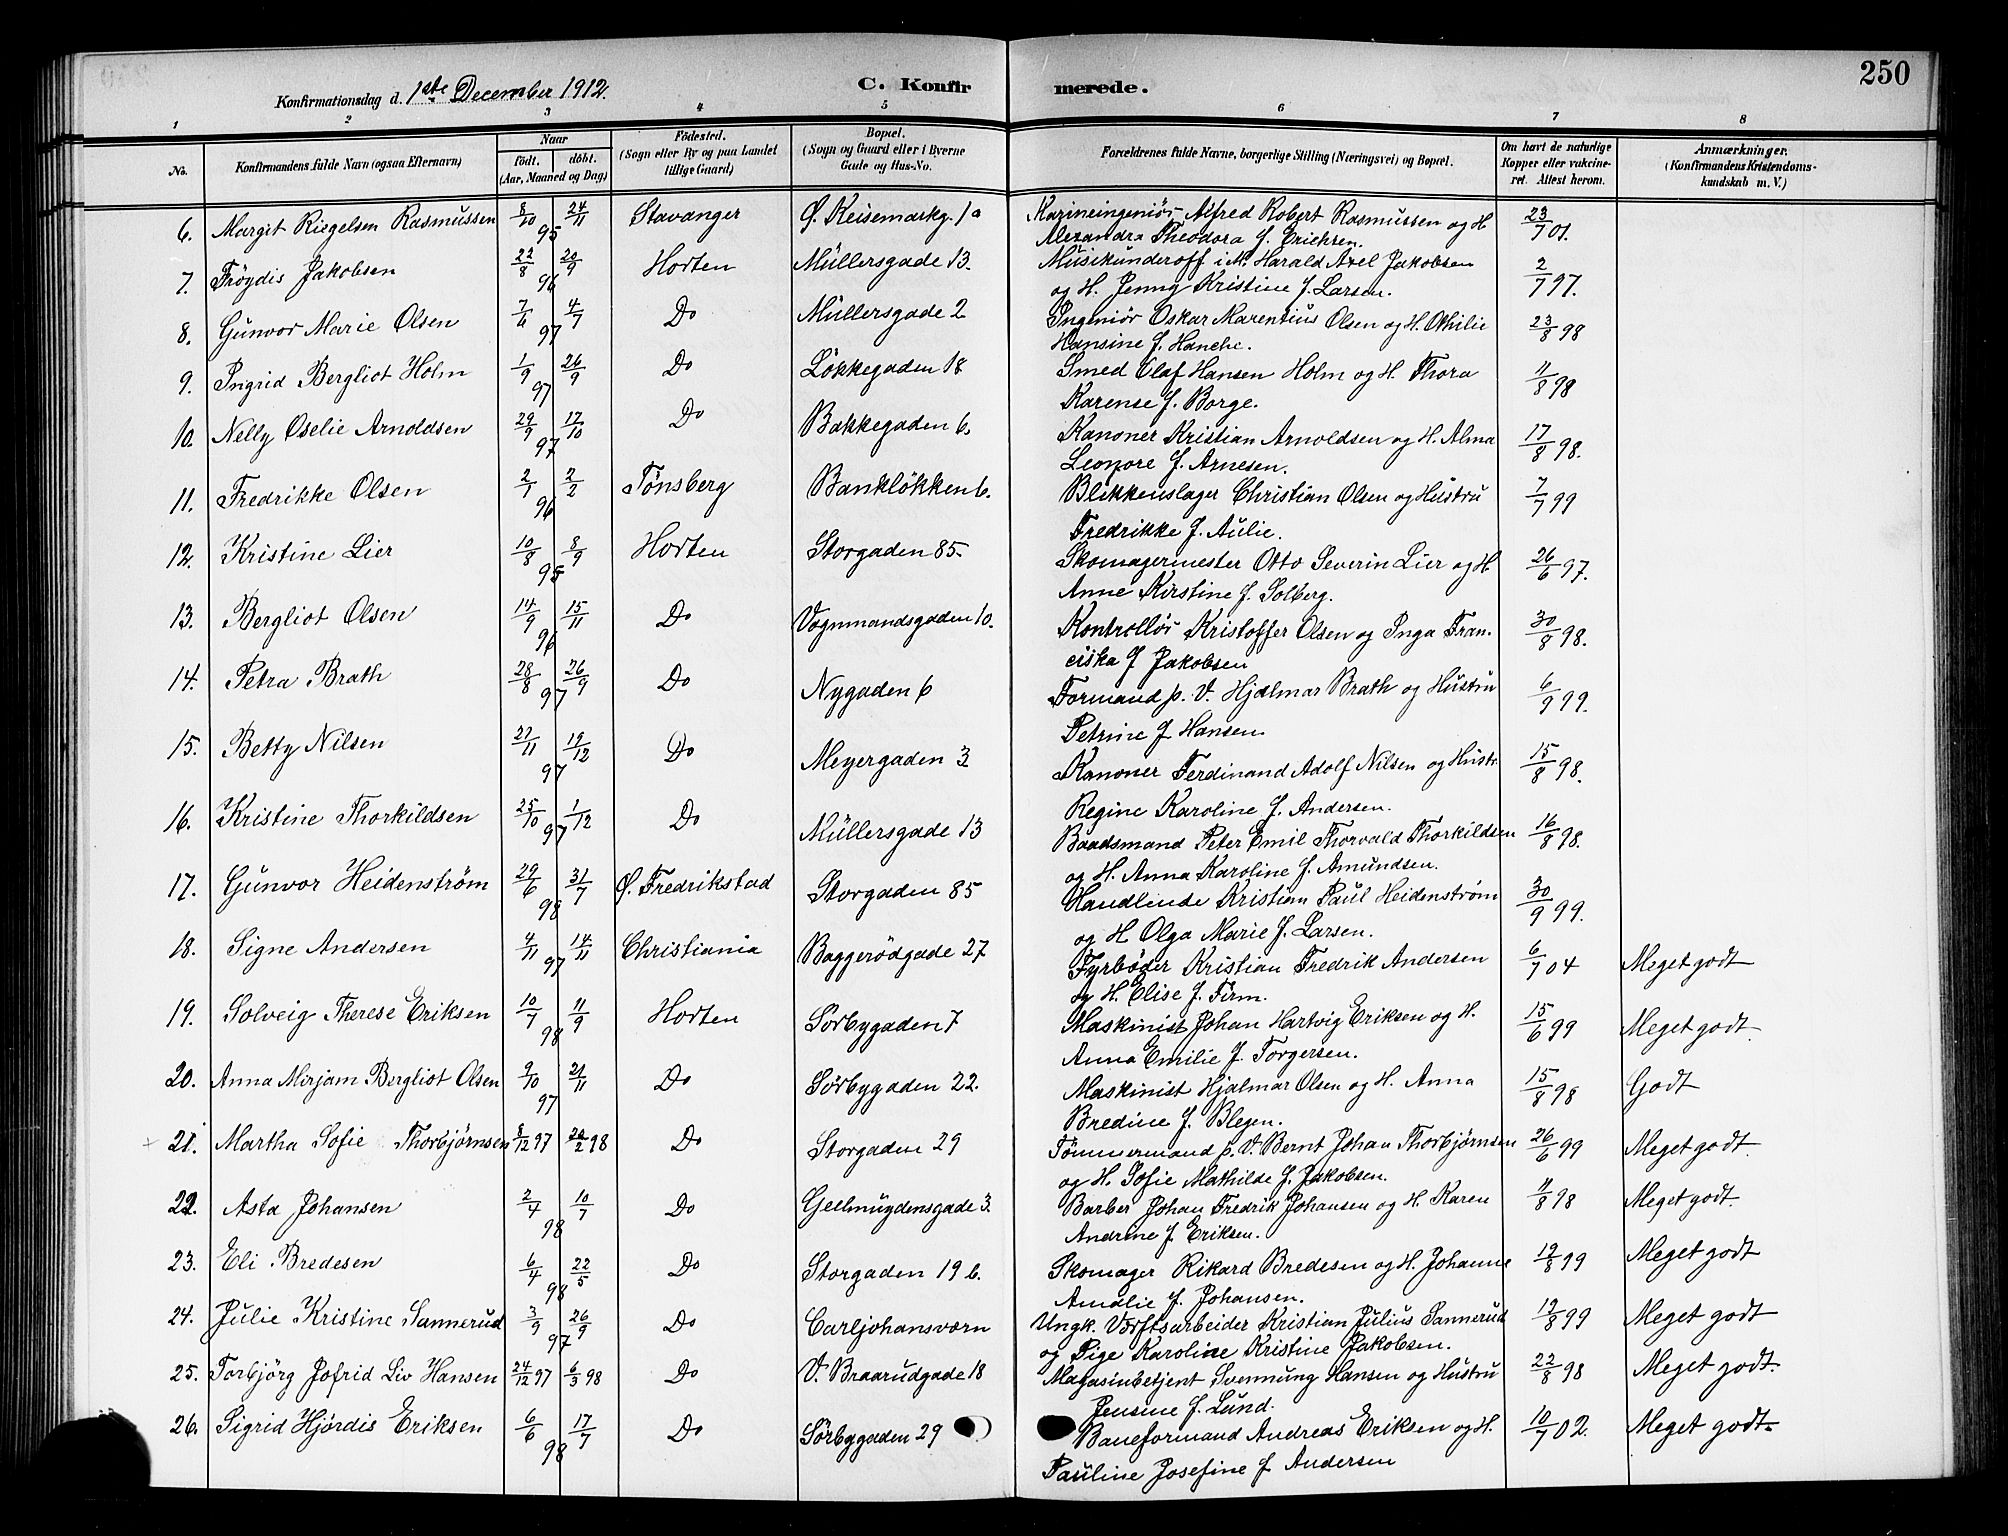 250
Konfirmationsdag d. 1ste December 1912.
C. Konfirmerede.
1 2 3 4 5 6 7 8
No. Konfirmandens fulde Navn (ogsaa Efternavn) Naar født. døbt. (Aar, Maaned og Dag) Fødested. (Sogn eller By og paa Landet tillige Gaard) Bopæl. (Sogn og Gaard eller i Byerne Gade og Hus-No. Forældrenes fulde Navne, borgerlige Stilling (Næringsvei) og Bopæl. Om havt de naturlige Kopper eller vaccineret. Attest herom. Anmærkninger. (Konfirmandens Kristendomskundskab m. V.)
6. Margit Riegelsen Rasmussen 8/10 95 24/11 Stavanger Ø. Keisemarkg. 1a Marineingeniør Alfred Robert Rasmussen og H
Alexandra Theodora f. Erichsen. 23/7 01.
7. Frøydis Jakobsen 22/8 96 20/9 Horten Müllersgade 13. Musikunderoff i M. Harald Axel Jakobsen
og H. Jenny Kristine f. Larsen. 2/7 97.
8. Gunvor Marie Olsen 7/6 97 4/7 Do Müllersgade 2 Ingeniør Oskar Marentius Olsen og H. Othilie
Hansine f. Hanche. 23/8 98
9. Ingrid Bergliot Holm 1/9 97 26/9 Do Løkkegaden 18 Smed Olaf Hansen Holm og H. Thora
Karense f. Borge. 11/8 98
10. Nelly Oselie Arnoldsen 29/9 97 17/10 Do Bakkegaden 6. Kanoner Kristian Arnoldsen og H. Alma
Leonore f. Arnesen. 17/8 98.
11. Fredrikke Olsen 2/1 96 2/2 Tønsberg Bankløkken 6. Blikkenslager Christian Olsen og Hustru
Fredrikke f. Aulie. 7/7 99
12. Kristine Lier 10/8 95 8/9 Horten Storgaden 85. Skomagermester Otto Severin Lier og H.
Anne Kirstine f. Solberg. 26/6 97.
13. Bergliot Olsen 14/9 96 15/11 Do Vognmandsgaden 10. Kontrollør Kristoffer Olsen og Inga Fran-
ciska f Jakobsen 30/8 98.
14. Petra Brath 28/8 97 26/9 Do Nygaden 6 Formand p. V. Hjalmar Brath og Hustru
Petrine f Hansen. 6/9 99.
15. Betty Nilsen 27/11 97 19/12 Do Meyergaden 3 Kanoner Ferdinand Adolf Nilsen og Hustr.
Regine Karoline f. Andersen. 15/8 98.
16. Kristine Thorkildsen 25/10 97 1/12 Do Müllersgade 13 Baadsmand Peter Emil Thorvald Thorkildsen
og H. Anna Karoline f. Amundsen. 16/8 98.
17. Gunvor Heidenstrøm 29/6 98 31/7 Ø. Fredrikstad Storgaden 85 Handlende Kristian Paul Heidenstrøm
og H Olga Marie f. Larsen. 30/9 99.
18. Signe Andersen 4/11 97 14/11 Christiania Baggerødgade 27 Fyrbøder Kristian Fredrik Andersen
og H. Elise f. Firm. 6/7 04 Meget godt
19. Solveig Therese Eriksen 10/7 98 11/9 Horten Sørbygaden 7 Maskinist Johan Hartvig Eriksen og H.
Anna Emilie f. Torgersen. 15/6 99 Meget godt
20. Anna Mirjam Bergliot Olsen 9/10 97 21/11 Do Sørbygaden 22. Maskinist Hjalmar Olsen og H. Anna
Bredine f. Blegen. 15/8 98 Godt
21. Martha Sofie Thorbjørnsen 8/12 97 20/2 98 Do Storgaden 29 Tømmermand p. V. Bernt Johan Thorbjørnsen
og H. Sofie Mathilde f. Jakobsen. 26/6 99 Meget godt
22. Asta Johansen 2/4 98 10/7 Do Geelmuydensgade 3. Barber Johan Fredrik Johansen og H. Karen
Andrine f. Eriksen. 11/8 98 Meget godt
23. Eli Bredesen 6/4 98 22/5 Do Storgaden 19 b. Skomager Rikard Bredesen og H. Johanne
Amalie f. Johansen. 19/8 99 Meget godt
24. Julie Kristine Sannerud 3/9 97 26/9 Do Carljohansværn Ungk. Værftsarbeider Kristian Julius Sannerud
og Pige Karoline Kristine Jakobsen. 19/8 99 Meget godt
25. Torbjørg Jofrid Liv Hansen 24/12 97 6/3 98 Do V. Braarudgade 18 Magasinbetjent Svennung Hansen og Hustru
Jensine f. Lund. 22/8 98 Meget godt
26. Sigrid Hjørdis Eriksen 6/6 98 17/7 Do Sørbygaden 29 Baneformand Andreas Eriksen og H.
Pauline Josefine f Andersen 10/7 02. Meget godt